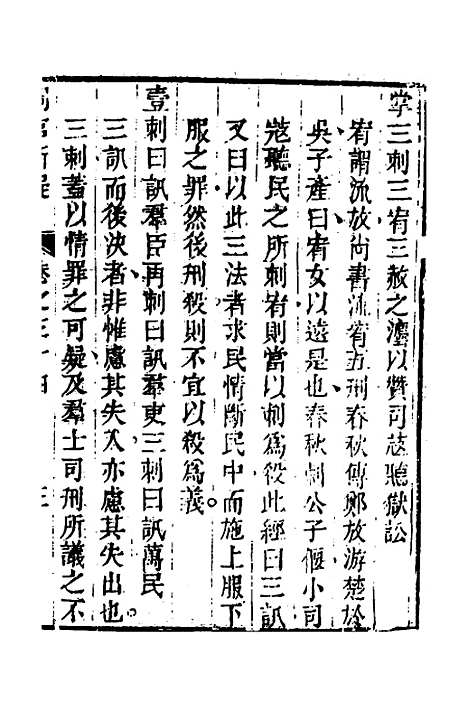 掌三刺三宥三赦之灋以贊司𡨥聽獄訟
宥謂流放尚書流宥五刑春秋傳鄭放游楚於
吳子產曰宥女以遠是也春秋刺公子偃小司
𡨥聽民之所刺宥則當以刺為殺此經曰三訊
又曰以此三法者求民情斷民中而施上服下
服之罪然後刑殺則不宜以殺為義。
壹刺曰訊羣臣再刺曰訊羣吏三刺曰訊萬民
三訊而後決者非惟慮其失入亦慮其失出也。
三刺蓋以情罪之可疑及羣士司刑所議之不
卷之三十四 三